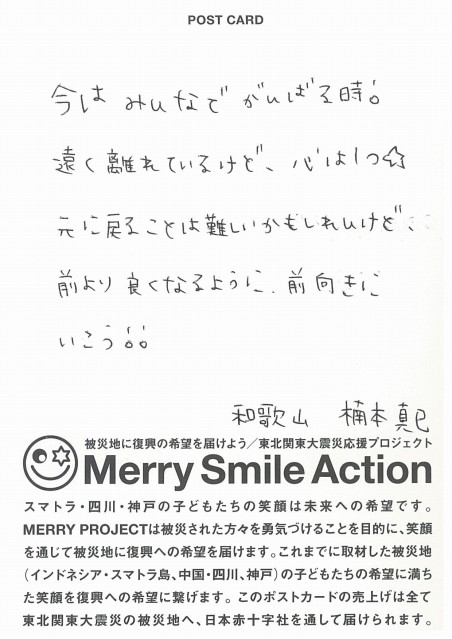 POST CARD
今は みんなで がんばる時!
遠く離れているけど、心は1つ☆
元に戻ることは難しいかもしれんけど、、
前より良くなるように、前向きに
いこう!!
和歌山 楠本真己
被災地に復興の希望を届けよう/東北関東大震災応援プロジェクト
Merry Smile Action
スマトラ・四川・神戸の子どもたちの笑顔は未来への希望です。
MERRY PROJECTは被災された方々を勇気づけることを目的に、笑顔
を通じて被災地に復興への希望を届けます。これまでに取材した被災地
(インドネシア・スマトラ島、中国・四川、神戸)の子どもたちの希望に満ち
た笑顔を復興への希望に繋げます。このポストカードの売上げは全て
東北関東大震災の被災地へ、日本赤十字社を通して届けられます。